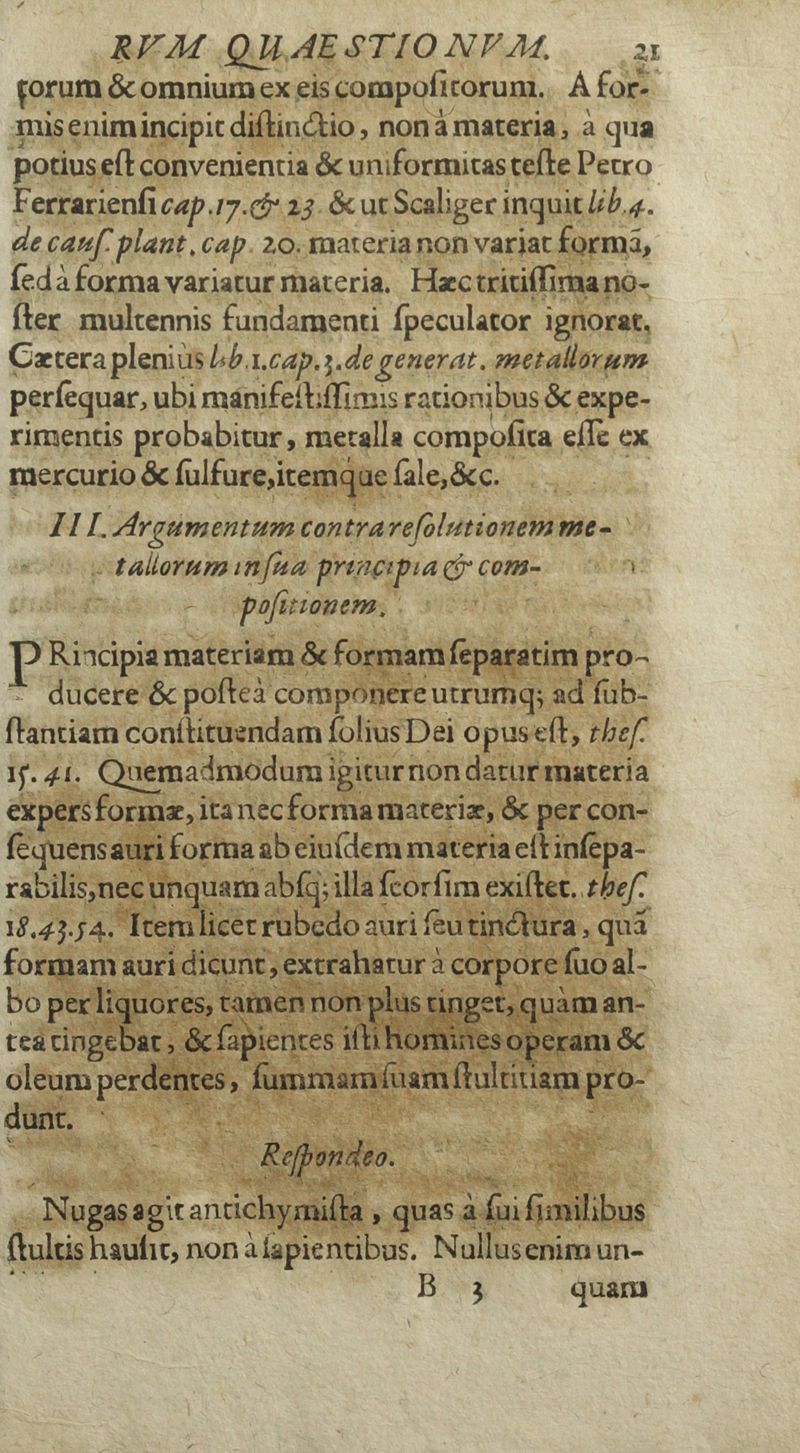 RVM QUAESTIONVM. 21
torum & omnium ex eis compoſitorum. A for-
mis enim incipit diſtinctio, non à materia, à qua
potius eſt convenientia & uniformitas teſte Petro
Ferrarienſi cap. 17. & 23. & ut Scaliger inquit lib. 4.
de cauſ. plant. cap. 20. materia non variat formã,
ſed à forma variatur materia. Hæc tritiſſima no-
ſter multennis fundamenti ſpeculator ignorat.
Cætera pleniùs lib. 1. cap. 3. de generat. metallorum
perſequar, ubi manifeſtiſſimis rationibus & expe-
rimentis probabitur, metalla compoſita eſſe ex
mercurio & ſulfure, itemque ſale, &c.
III. Argumentum contra reſolutionem me-
tallorum in ſua principia & com-
poſitionem.
PRincipia materiam & formam ſeparatim pro-
ducere & poſteà componere utrumq; ad ſub-
ſtantiam conſtituendam ſolius Dei opus eſt, theſ.
15. 41. Quemadmodum igitur non datur materia
expers formæ, ita nec forma materiæ, & per con-
ſequens auri forma ab eiuſdem materia eſt inſepa-
rabilis, nec unquam abſq; illa ſeorſim exiſtet. theſ.
18. 43. 54. Item licet rubedo auri ſeu tinctura, quã
formam auri dicunt, extrahatur à corpore ſuo al-
bo per liquores, tamen non plus tinget, quàm an-
tea tingebat, & ſapientes iſti homines operam &
oleum perdentes, ſummam ſuam ſtultitiam pro-
dunt.
Reſpondeo.
Nugas agit antichymiſta, quas à ſui ſimilibus
ſtultis hauſit, non à ſapientibus. Nullus enim un-
B 3 quam